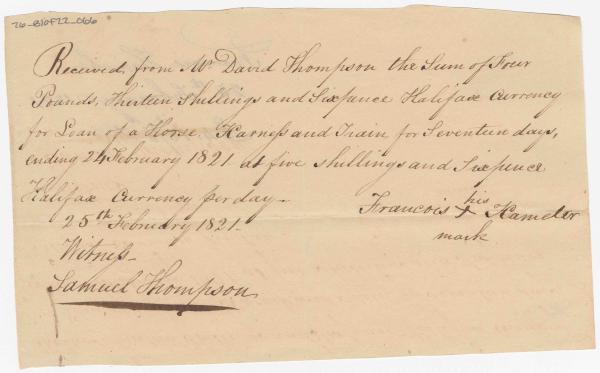 26_B10F22_066
Received from Mr David Thompson the Sum of Four
Pounds, Thirteen Shillings and Sixpence Halifax Currency
for Loan of a Horse, Harness and Train for Seventeen days,
ending 24 February 1821 at five shillings and Sixpence
Halifax Currency per day—
25th February 1821—
Francois his + Hamelir
mark
Witness—
Samuel Thompson